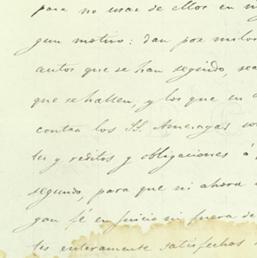 para no usar de ellos en n
gun motivo: dan por nulos
autos que se han seguido, sea
que se hallen, y los que en
contra los SS. Amezagas so
tes y réditos y obligaciones á
segundo, para que ni ahora
gan fé en juicio ni fuera de
tes enteramente satisfechos